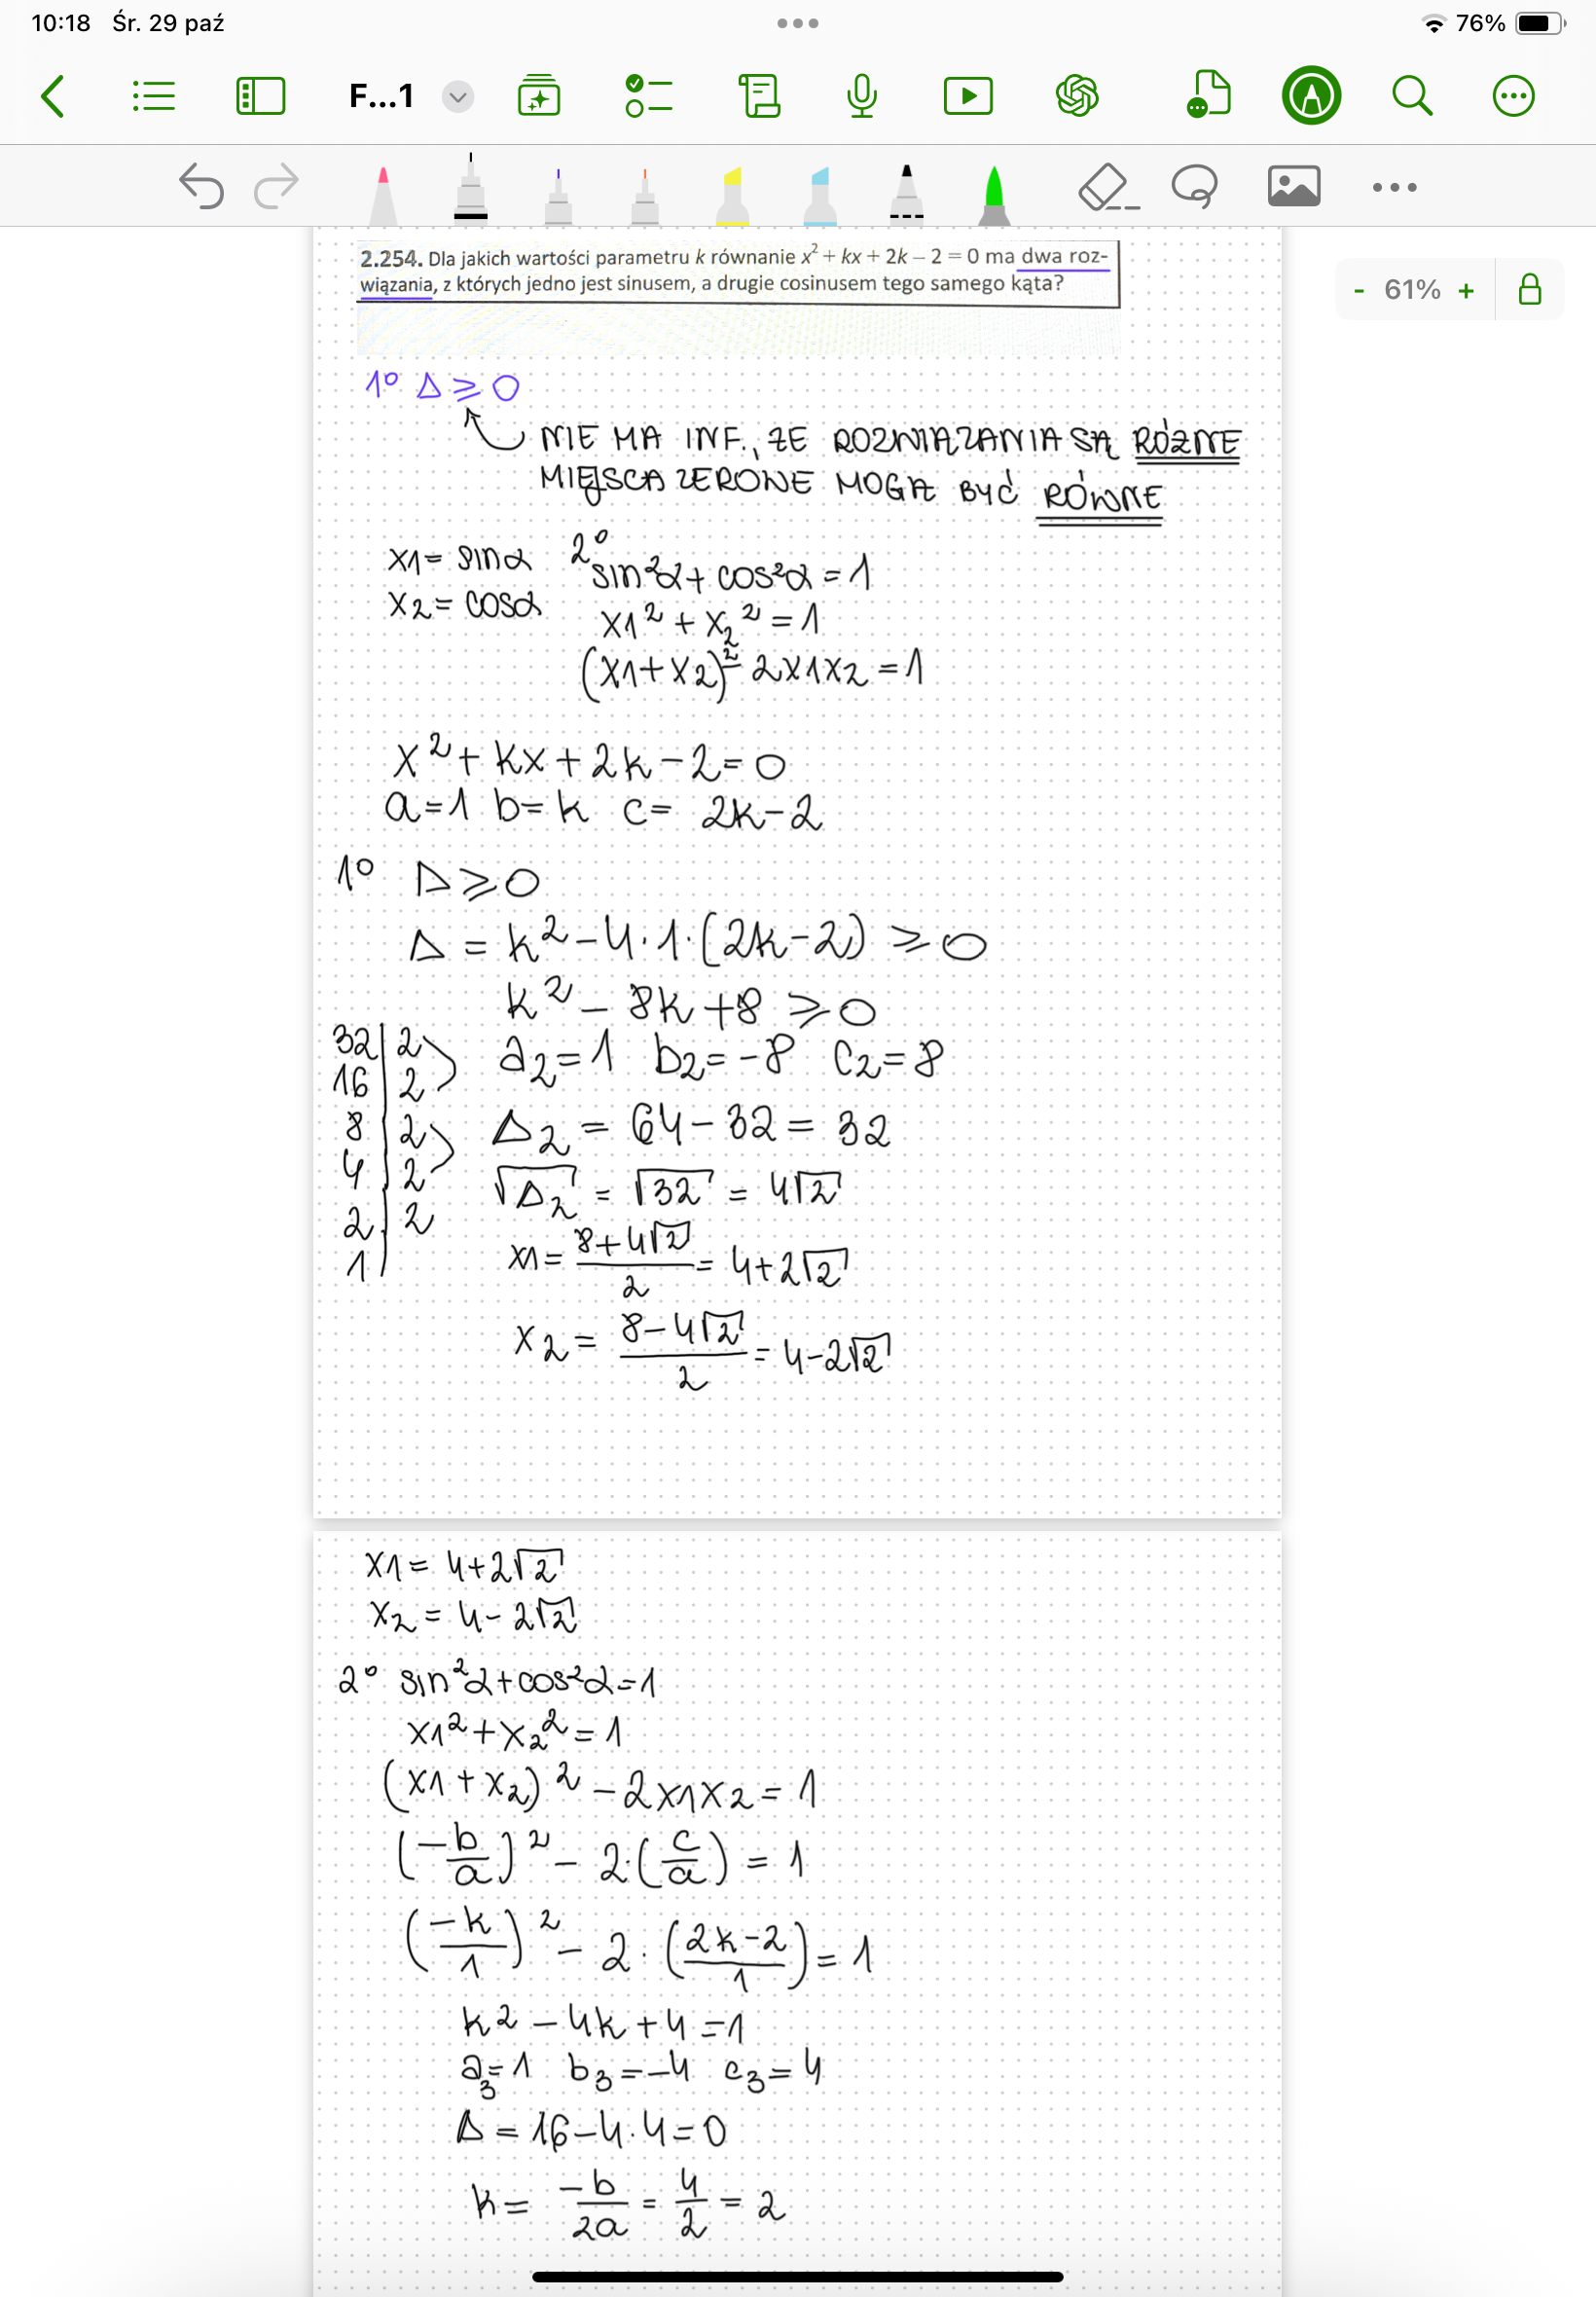 10:18 Śr. 29 paź
76%
F...1
- 61% +
2.254. Dla jakich wartości parametru k równanie x² + kx + 2k – 2 = 0 ma dwa roz-
wiązania, z których jedno jest sinusem, a drugie cosinusem tego samego kąta?
1° Δ ⩾ 0
NIE MA INF., ŻE ROZWIĄZANIA SĄ RÓŻNE
MIEJSCA ZEROWE MOGĄ BYĆ RÓWNE
x1 = sinα 2° sin²α + cos²α = 1
x2 = cosα
x1² + x2² = 1
(x1 + x2)² - 2x1x2 = 1
x² + kx + 2k - 2 = 0
a = 1 b = k c = 2k - 2
1° Δ ⩾ 0
Δ = k² - 4·1·(2k - 2) ⩾ 0
k² - 8k + 8 ⩾ 0
a2 = 1 b2 = -8 c2 = 8
Δ2 = 64 - 32 = 32
√Δ2 = √32 = 4√2
x1 = (8+4√2)/2 = 4+2√2
x2 = (8-4√2)/2 = 4-2√2
32 | 2
16 | 2
8 | 2
4 | 2
2 | 2
1 |
x1 = 4+2√2
x2 = 4-2√2
2° sin²α + cos²α = 1
x1² + x2² = 1
(x1 + x2)² - 2x1x2 = 1
(-b/a)² - 2·(c/a) = 1
(-k/1)² - 2·((2k-2)/1) = 1
k² - 4k + 4 = 1
a3 = 1 b3 = -4 c3 = 4
Δ = 16 - 4·4 = 0
k = -b/2a = 4/2 = 2